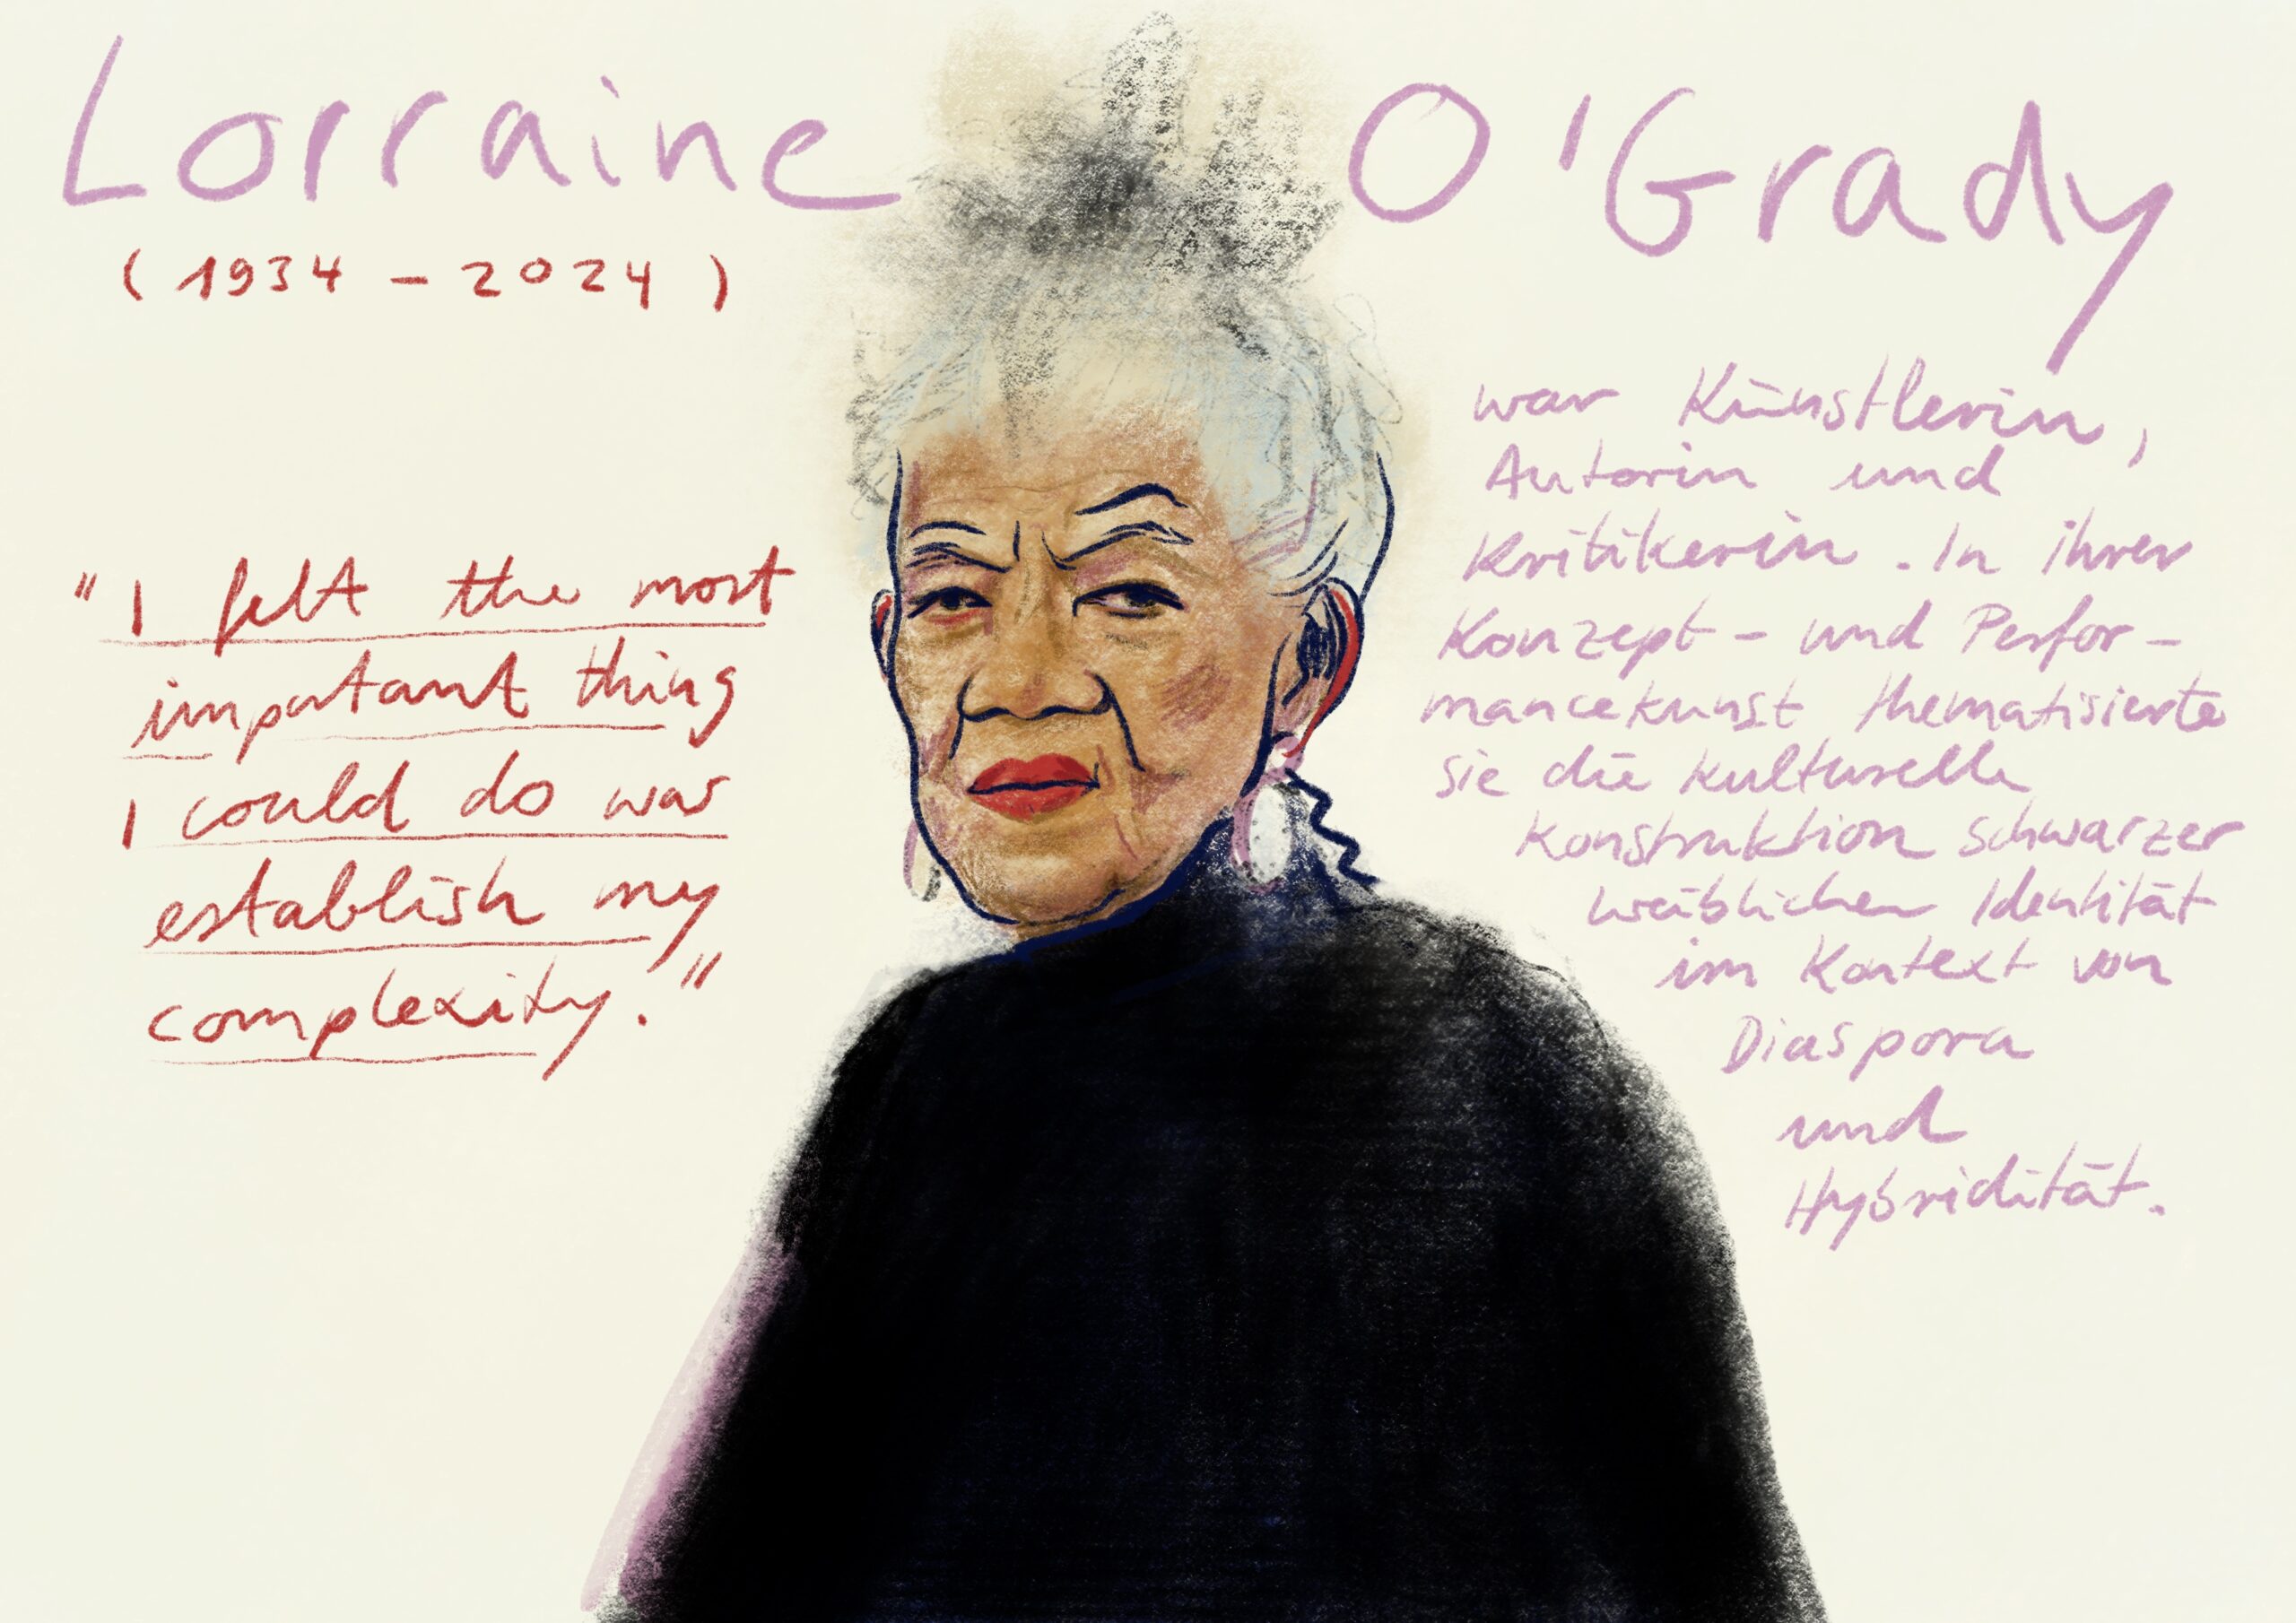 Lorraine O'Grady
(1934 – 2024)
"I felt the most
important thing
I could do was
establish my
complexity."
war Künstlerin,
Autorin und
Kritikerin. In ihrer
Konzept- und Perfor-
mancekunst thematisierte
sie die kulturelle
Konstruktion schwarzer
weiblicher Identität
im Kontext von
Diaspora
und
Hybridität.